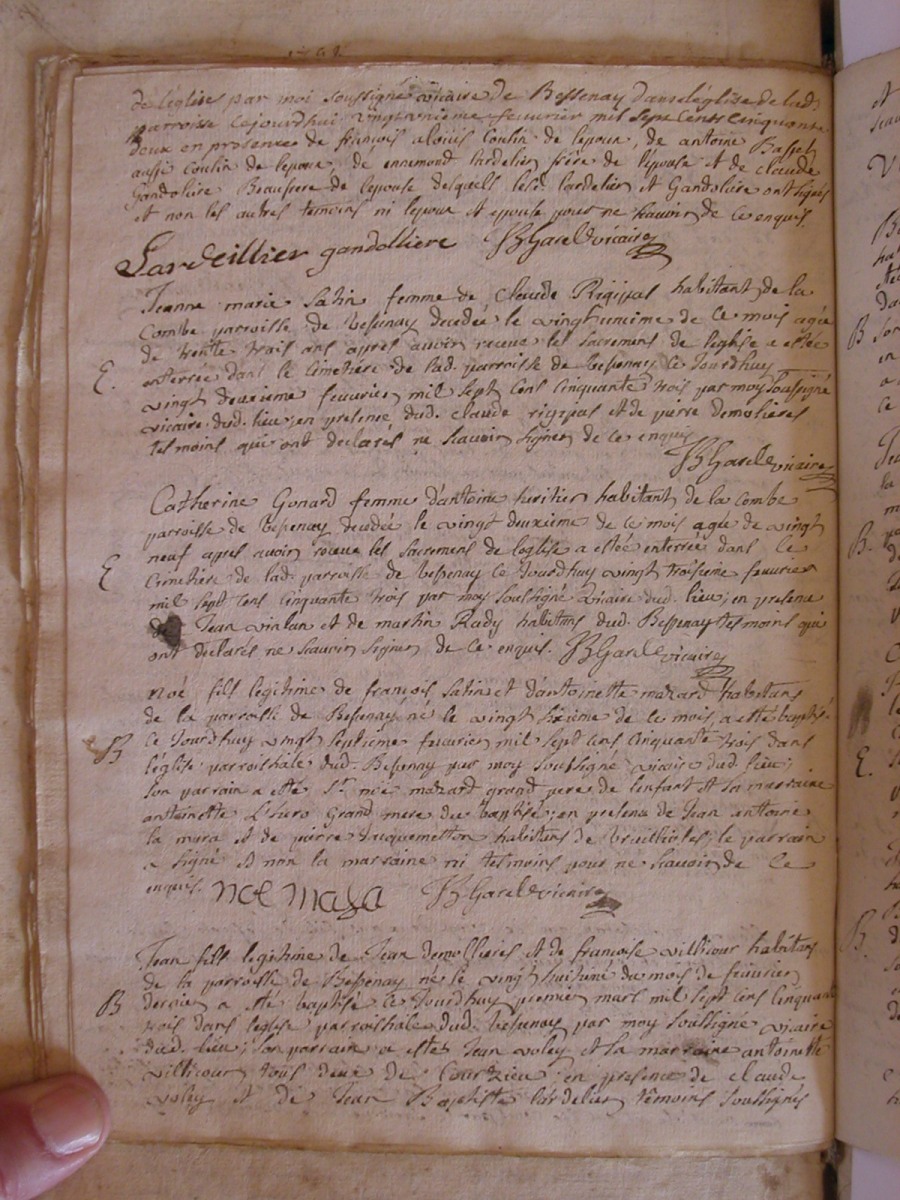 de l'église par moi soussigné vicaire de Bessenay dans l'église de lad.
parroisse cejourdhui vingtunieme feuurier mil sept cents cinquante
deux en presence de françois alouis cousin de lepoux, de antoine Basset
aussi cousin de lepoux, de ennemond lardelier frère de lepouse et de claude
Gandoliere Beaufrere de lepouse desquels lesd. lardelier et Gandoliere ont signés
et non les autres temoins ni lepoux et epouse pour ne scauoir de ce enquis.
Lardeillier gandolliere JB Garel vicaire
Jeanne marie Satin femme de Claude Rigipal habitant de la
Combe parroisse de Bessenay decedée le vingtunieme de ce mois agée
de trente trois ans apres auoir receue les sacremens de leglise a estée
E. enterrée dans le cimetiere de lad. parroisse de Bessenay ce Jourdhuy
vingt deuxieme feuurier mil sept cens cinquante trois par moy soussigné
vicaire dud. lieu, en presence dud. claude rigipal et de pierre demolieres
tesmoins qui ont declarés ne scauoir signer de ce enquis
JB Garel vicaire
Catherine Gonard femme d'antoine heritier habitant de la combe
parroisse de Bessenay decedée le vingt deuxieme de ce mois agée de vingt
neuf apres auoir receue les sacremens de leglise a estée enterrée dans le
E Cimetiere de lad. parroisse de Bessenay ce Jourdhuy vingt troisieme feuurier
mil sept cens cinquante trois par moy soussigné vicaire dud. lieu, en presence
de Jean vialan et de martin Rady habitans dud. Bessenay tesmoins qui
ont declarés ne scauoir signer de ce enquis. JB Garel vicaire
Noé, fils legitime de françois Satin et d'antoinette mazard habitans
de la parroisse de Bessenay né le vingt sixieme de ce mois, a esté baptisé
B ce Jourdhuy vingt septieme feuurier mil sept cens cinquante trois dans
l'église parroishiale dud. Bessenay par moy soussigné vicaire dud. lieu;
son parrain a esté Sr. noé mazard grand pere de lenfant et sa marraine
antoinette grand mere du baptisé; en presence de Jean antoine
la mura et de pierre Jacquemetton habitans de bruillioles; le parrain
a signé et non la marraine ni tesmoins pour ne scauoir de ce
enquis. noe maza JB Garel vicaire
Jean fils legitime de Jean demollieres et de françoise villicour habitans
de la parroisse de Bessenay né le vingt huitieme du mois de feuurier
B dernier a été baptisé ce Jourdhuy premier mars mil sept cens cinquante
trois dans leglise parroishiale dud. Bessenay par moy soussigné vicaire
dud. lieu; son parrain a estés Jean voley et la marraine antoinette
villicour tous deux de Courzieu en presence de claude
voley et de Jean Baptiste lardelier temoins soussignés